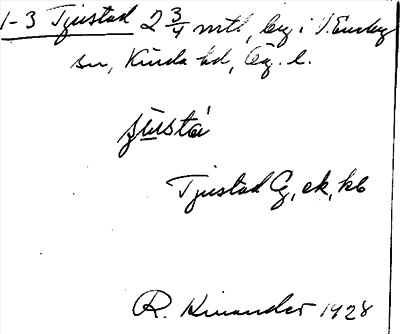 1-3 Tjustad 2 3/4 mtl, by i V. Eneby
sn, Kinda hd, Ög. l.
Tjustad G, ek, kb
R. Kinander 1928